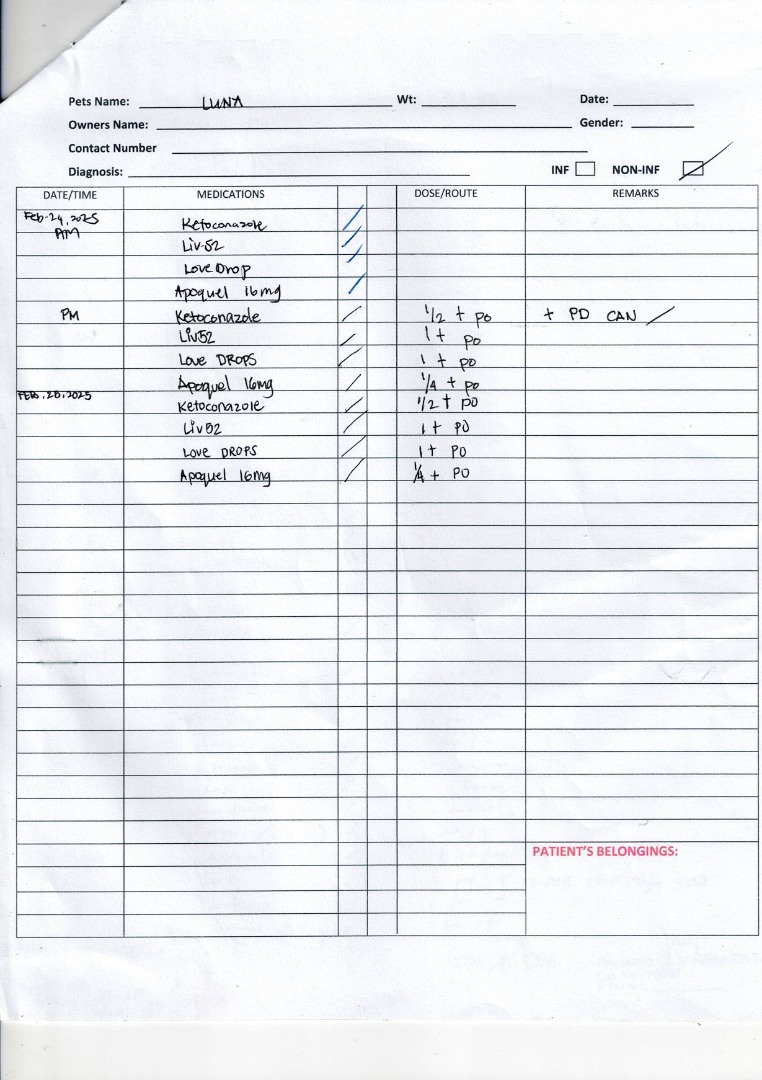 Pets Name: LUNA Wt: Date:
Owners Name: Gender:
Contact Number
Diagnosis: INF NON-INF
DATE/TIME MEDICATIONS DOSE/ROUTE REMARKS
Feb-24, 2025 Ketoconazole
AM Liv-52
Love Drop
Apoquel 16mg
PM Ketoconazole 1/2 t po + PD CAN
Liv52 1t po
Love DROPS 1 t po
Apoquel 16mg 1/4 t po
Ketoconazole 1/2 t po
Liv52 1t PO
Love DROPS 1t PO
Apoquel 16mg 1/4 t PO
PATIENT'S BELONGINGS: